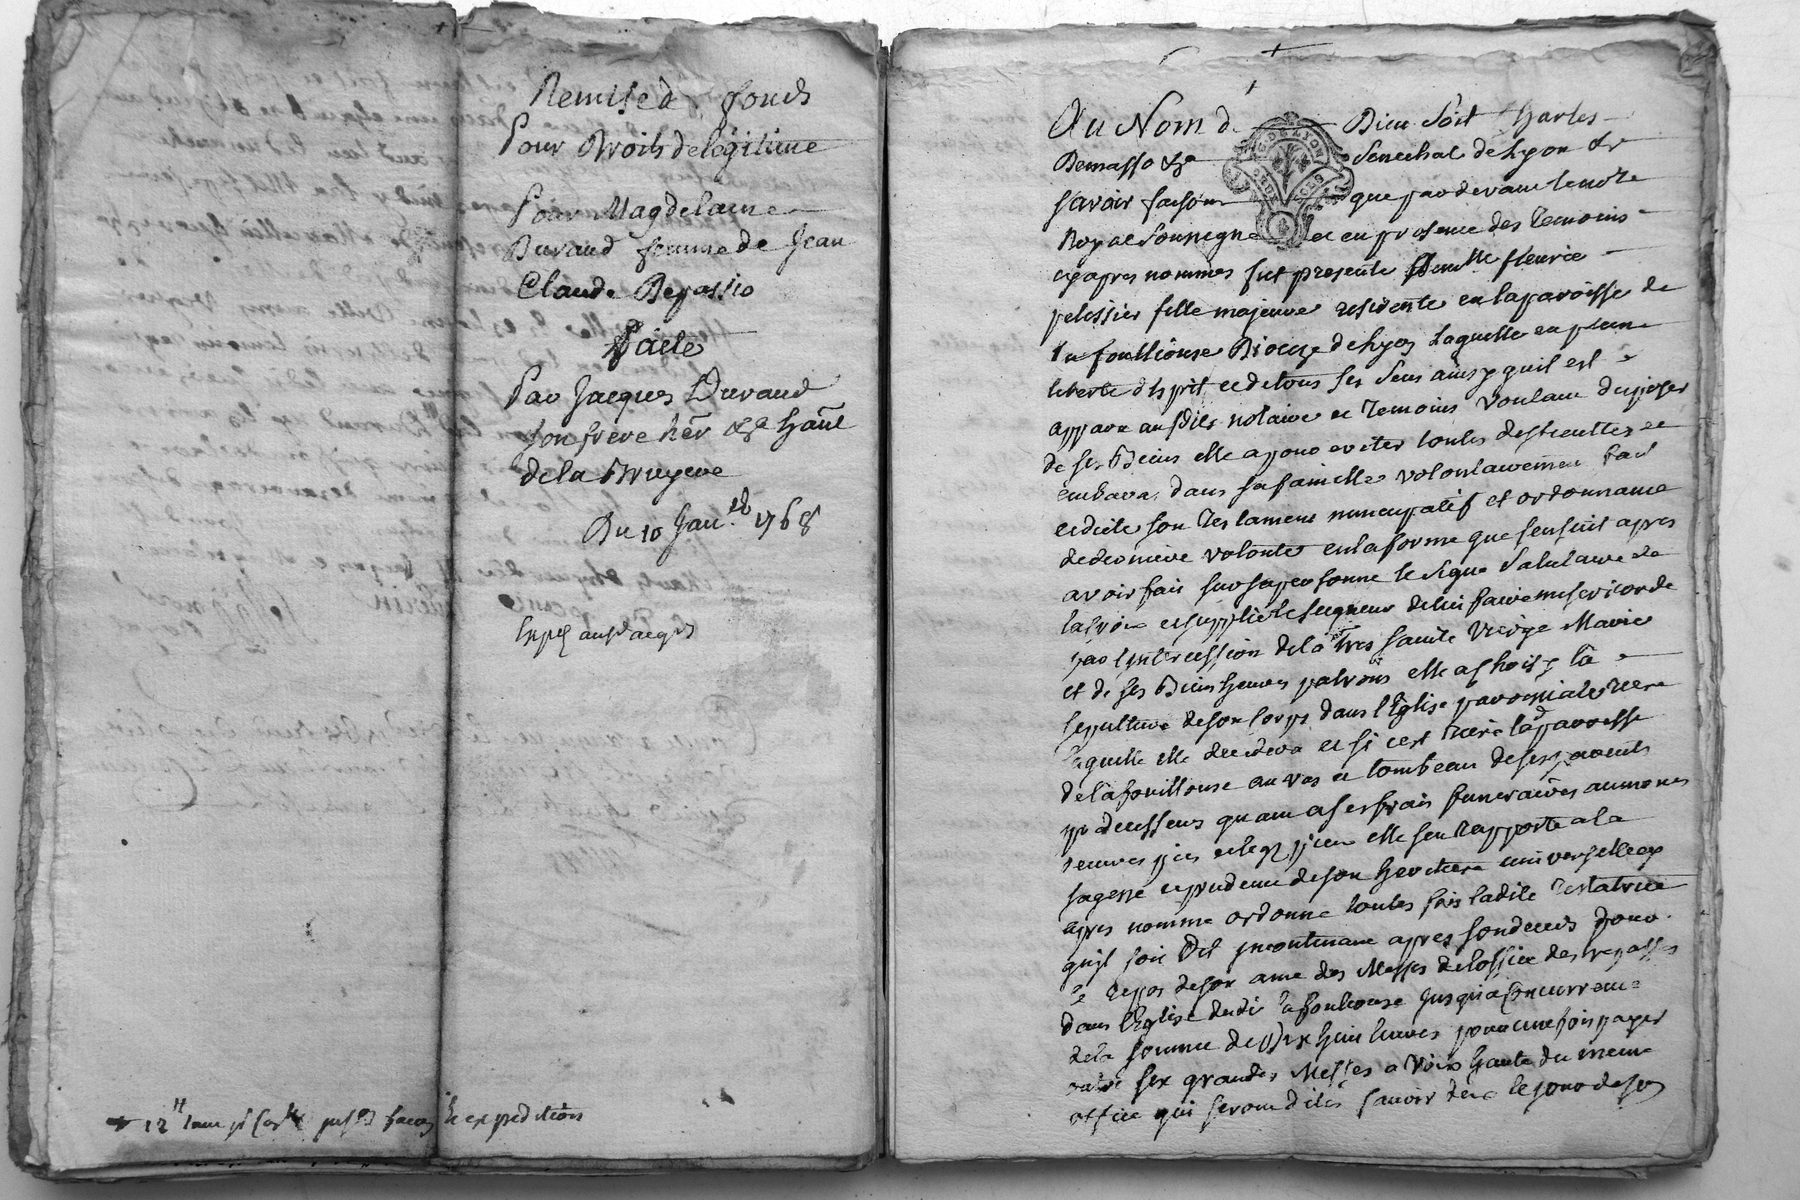 Remise de fonds
Pour Droits de legitime
Pour Magdelaine
Durand femme de Jean
Claude Repassio
Faicte
Par Jacques Durand
son frere her &a hānt
de la Bruyere
Du 10 Jan.er 1768
Exped aud Jacques
12
expedition
Au Nom de Dieu Soit Charles
Demasso &a Senechal de Lyon &
savoir faisons que pardevant le note
Royal soussigne et en presence des temoins
cy apres nommes fut presente demlle fleurie
pelossier fille majeure residente en la paroisse de
la fouillouse Dioceze de Lyon laquelle en pleine
liberte desprit et de tous ses sens ainsy quil est
apparu ausdits notaire et temoins voulant disposer
de ses Biens elle a pour eviter toutes dificultes et
embaras dans sa famille volontairement fait
et dicte son testament nuncupatif et ordonnance
de derniere volonte en la forme que sensuit apres
avoir fait sur sa personne le signe salutaire de
la croix et supplie le seigneur de lui faire misericorde
par lintercession de la tres sainte vierge Marie
et de ses Bienheureux patrons elle a choisy la
sepulture de son corps dans l'Eglise parroissiale riere
laquelle elle decedera et si cest riere lad parroisse
de la fouillouse au vas et tombeau de ses parents
predecesseurs quant a ses frais funeraires aumones
oeuvres pies et legs pieux elle sen rapporte a la
sagesse et prudence de son heritiere universelle cy
apres nommee ordonne toutes fois ladite testatrice
quil soit dit incontinant apres son deceds pour
le repos de son ame des Messes de loffice des trepasses
dans lEglise dudit la fouliouse jusqu'a concurrence
de la somme de Dix huit livres pour une fois payer
outre six grandes Messes a voix haute du meme
office qui seront dites savoir deux le jour de son